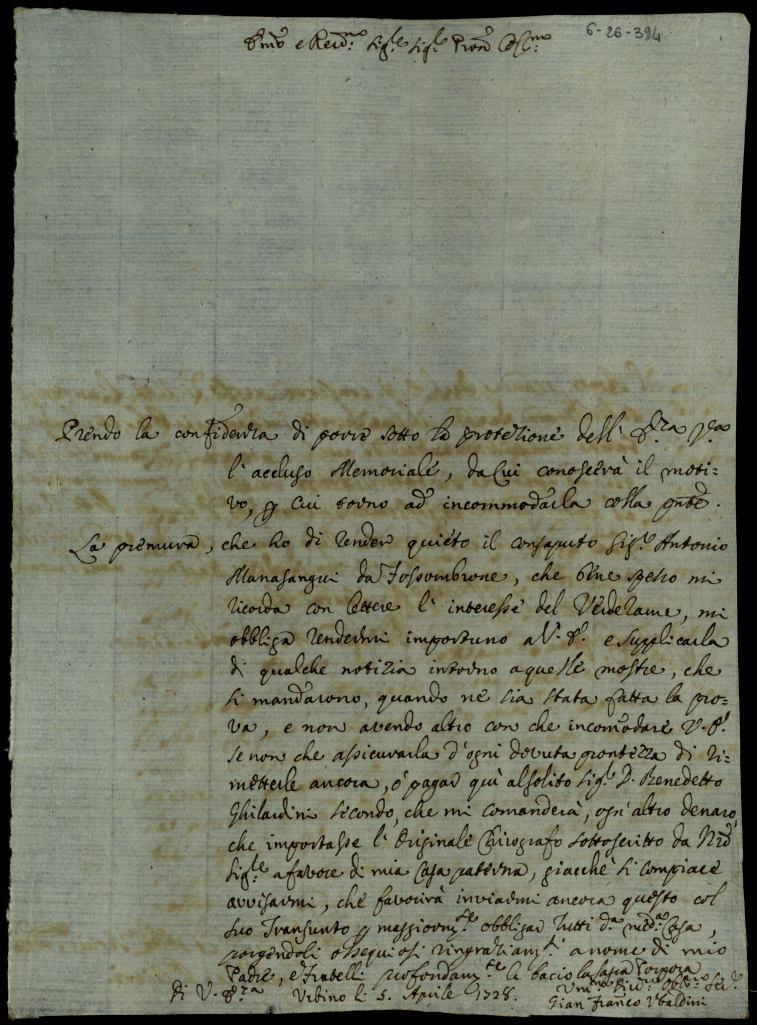 6-26-394
Em̃o e Rev.mo Sig.re Sig.re Pron̄ Col.mo
Prendo la confidenza di porre sotto la protezione dell' E.za V.ra
l' accluso Memoriale, da cui conoscerà il moti=
vo, p cui torno ad incommodarla colla pnte.
La premura, che ho di render quieto il consaputo Sig.r Antonio
Manasangui da Fossombrone, che bene spesso mi
ricorda con lettere l' interesse del Verderame, mi
obbliga rendermi importuno a V. E. e supplicarla
di qualche notizia intorno a quelle mostre, che
si mandarono, quando ne sia stata fatta la pro=
va, e non avendo altro con che incomodare V. E.
se non che assicurarla d' ogni dovuta prontezza di ri=
metterle ancora, o pagar quì al solito Sig.r D. Benedetto
Ghilardini secondo, che mi comanderà, ogn' altro denaro,
che importasse l' Originale Chirografo sottoscritto da N̄ro
Sig.re a favore di mia Casa paterna, giacche si compiace
avvisarmi, che favorirà inviarmi ancora questo col
suo Transunto p maggiorm.te obbligar tutti d.a med.a Casa,
porgendoli ossequiosi ringraziam.ti a nome di mio
Padre, e Fratelli profondam.te le bacio la sacra Porpora
di V. E.za Urbino li 5. Aprile 1728.
Um.mo Div.mo Obb.mo Ser.e
Gian Franco Ubaldini